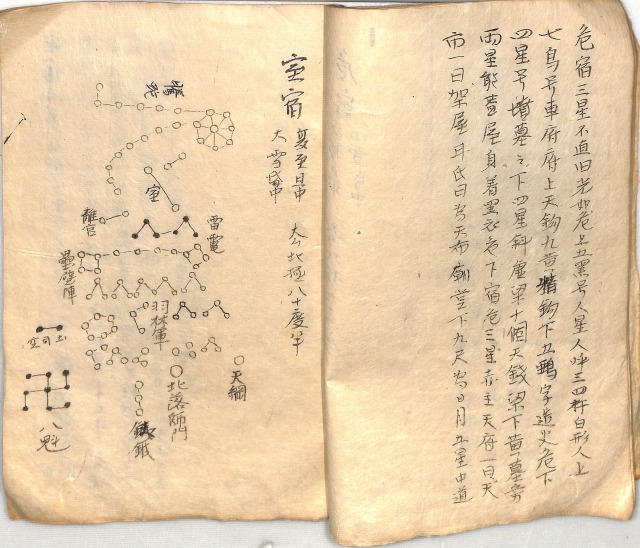 危宿三星不直旧先如危上五黑号人星人呼三四杵臼形人上
七鸟号車府府上天鈎九黄精鈎下五鴉字造父危下
四星号墳墓之下四星斜虚梁十個天錢梁下黄墓旁
兩星能蓋屋身着黑衣危下宿危三星赤主天府一曰天
市一曰架屋 氏曰为天市廟堂下九尺为日月五星中道
室宿
夏至
大雪
去北極八十度半
螣蛇
室
離宫
雷電
壘壁陣
羽林軍
土司空
天綱
北落師門
八魁
鈇鉞